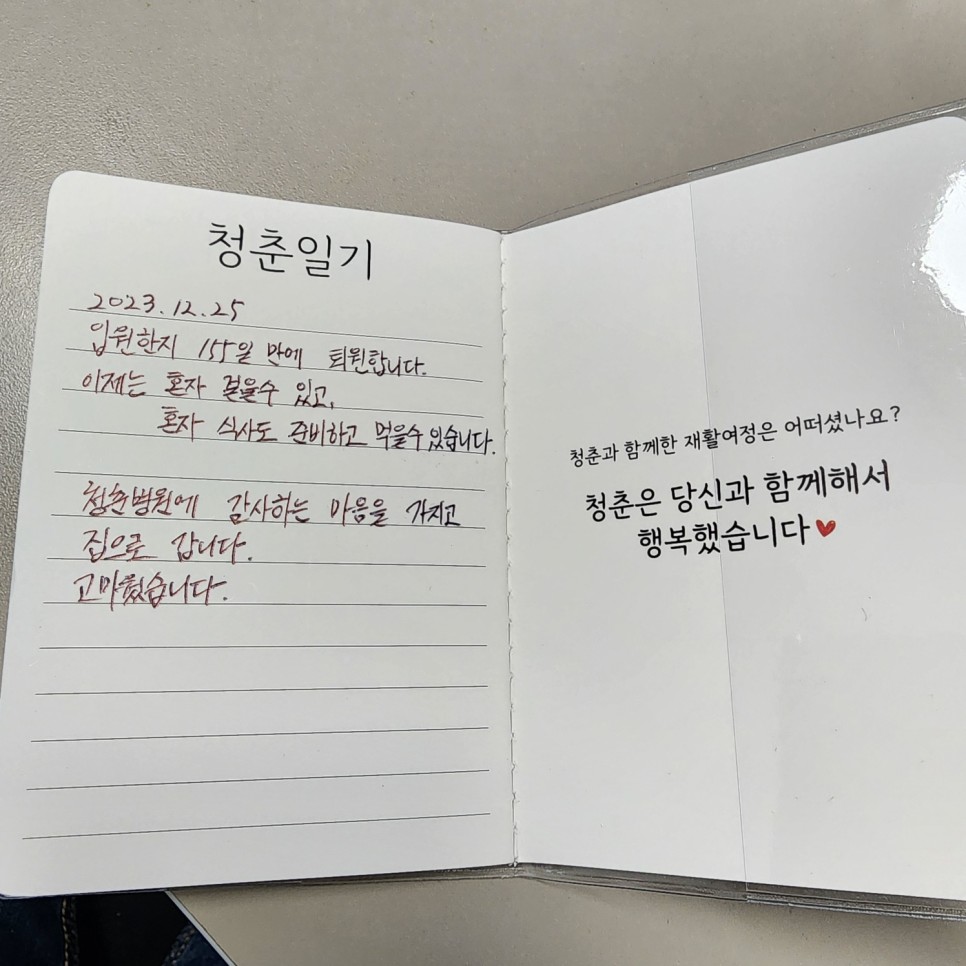 청춘일기
2023.12.25
입원한지 155일 만에 퇴원합니다.
이제는 혼자 걸을수 있고,
혼자 식사도 준비하고 먹을수 있습니다.
청춘병원에 감사하는 마음을 가지고
집으로 갑니다.
고마웠습니다.
청춘과 함께한 재활여정은 어떠셨나요?
청춘은 당신과 함께해서
행복했습니다♥